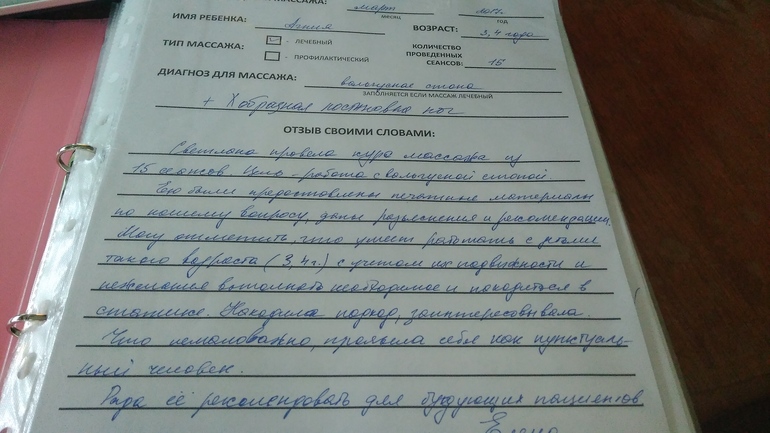 МАССАЖА: март
месяц год
ИМЯ РЕБЕНКА: Агния ВОЗРАСТ: 3,4 года
ТИП МАССАЖА: - ЛЕЧЕБНЫЙ КОЛИЧЕСТВО ПРОВЕДЕННЫХ СЕАНСОВ: 15
- ПРОФИЛАКТИЧЕСКИЙ
ДИАГНОЗ ДЛЯ МАССАЖА: вальгусная стопа
ЗАПОЛНЯЕТСЯ ЕСЛИ МАССАЖ ЛЕЧЕБНЫЙ
+ Хобразная постановка ног
ОТЗЫВ СВОИМИ СЛОВАМИ:
Светлана провела курс массажа из
15 сеансов. Цель - работа с вальгусной стопой.
Ею были предоставлены печатные материалы
по нашему вопросу, даны разъяснения и рекомендации.
Могу отметить, что умеет работать с детьми
такого возраста (3,4 г.) с учетом их подвижности и
нежелания выполнять необходимое и находиться в
статике. Находила подход, заинтересовывала.
Что немаловажно, проявила себя как пунктуаль-
ный человек.
Рада её рекомендовать для будующих пациентов
Елена